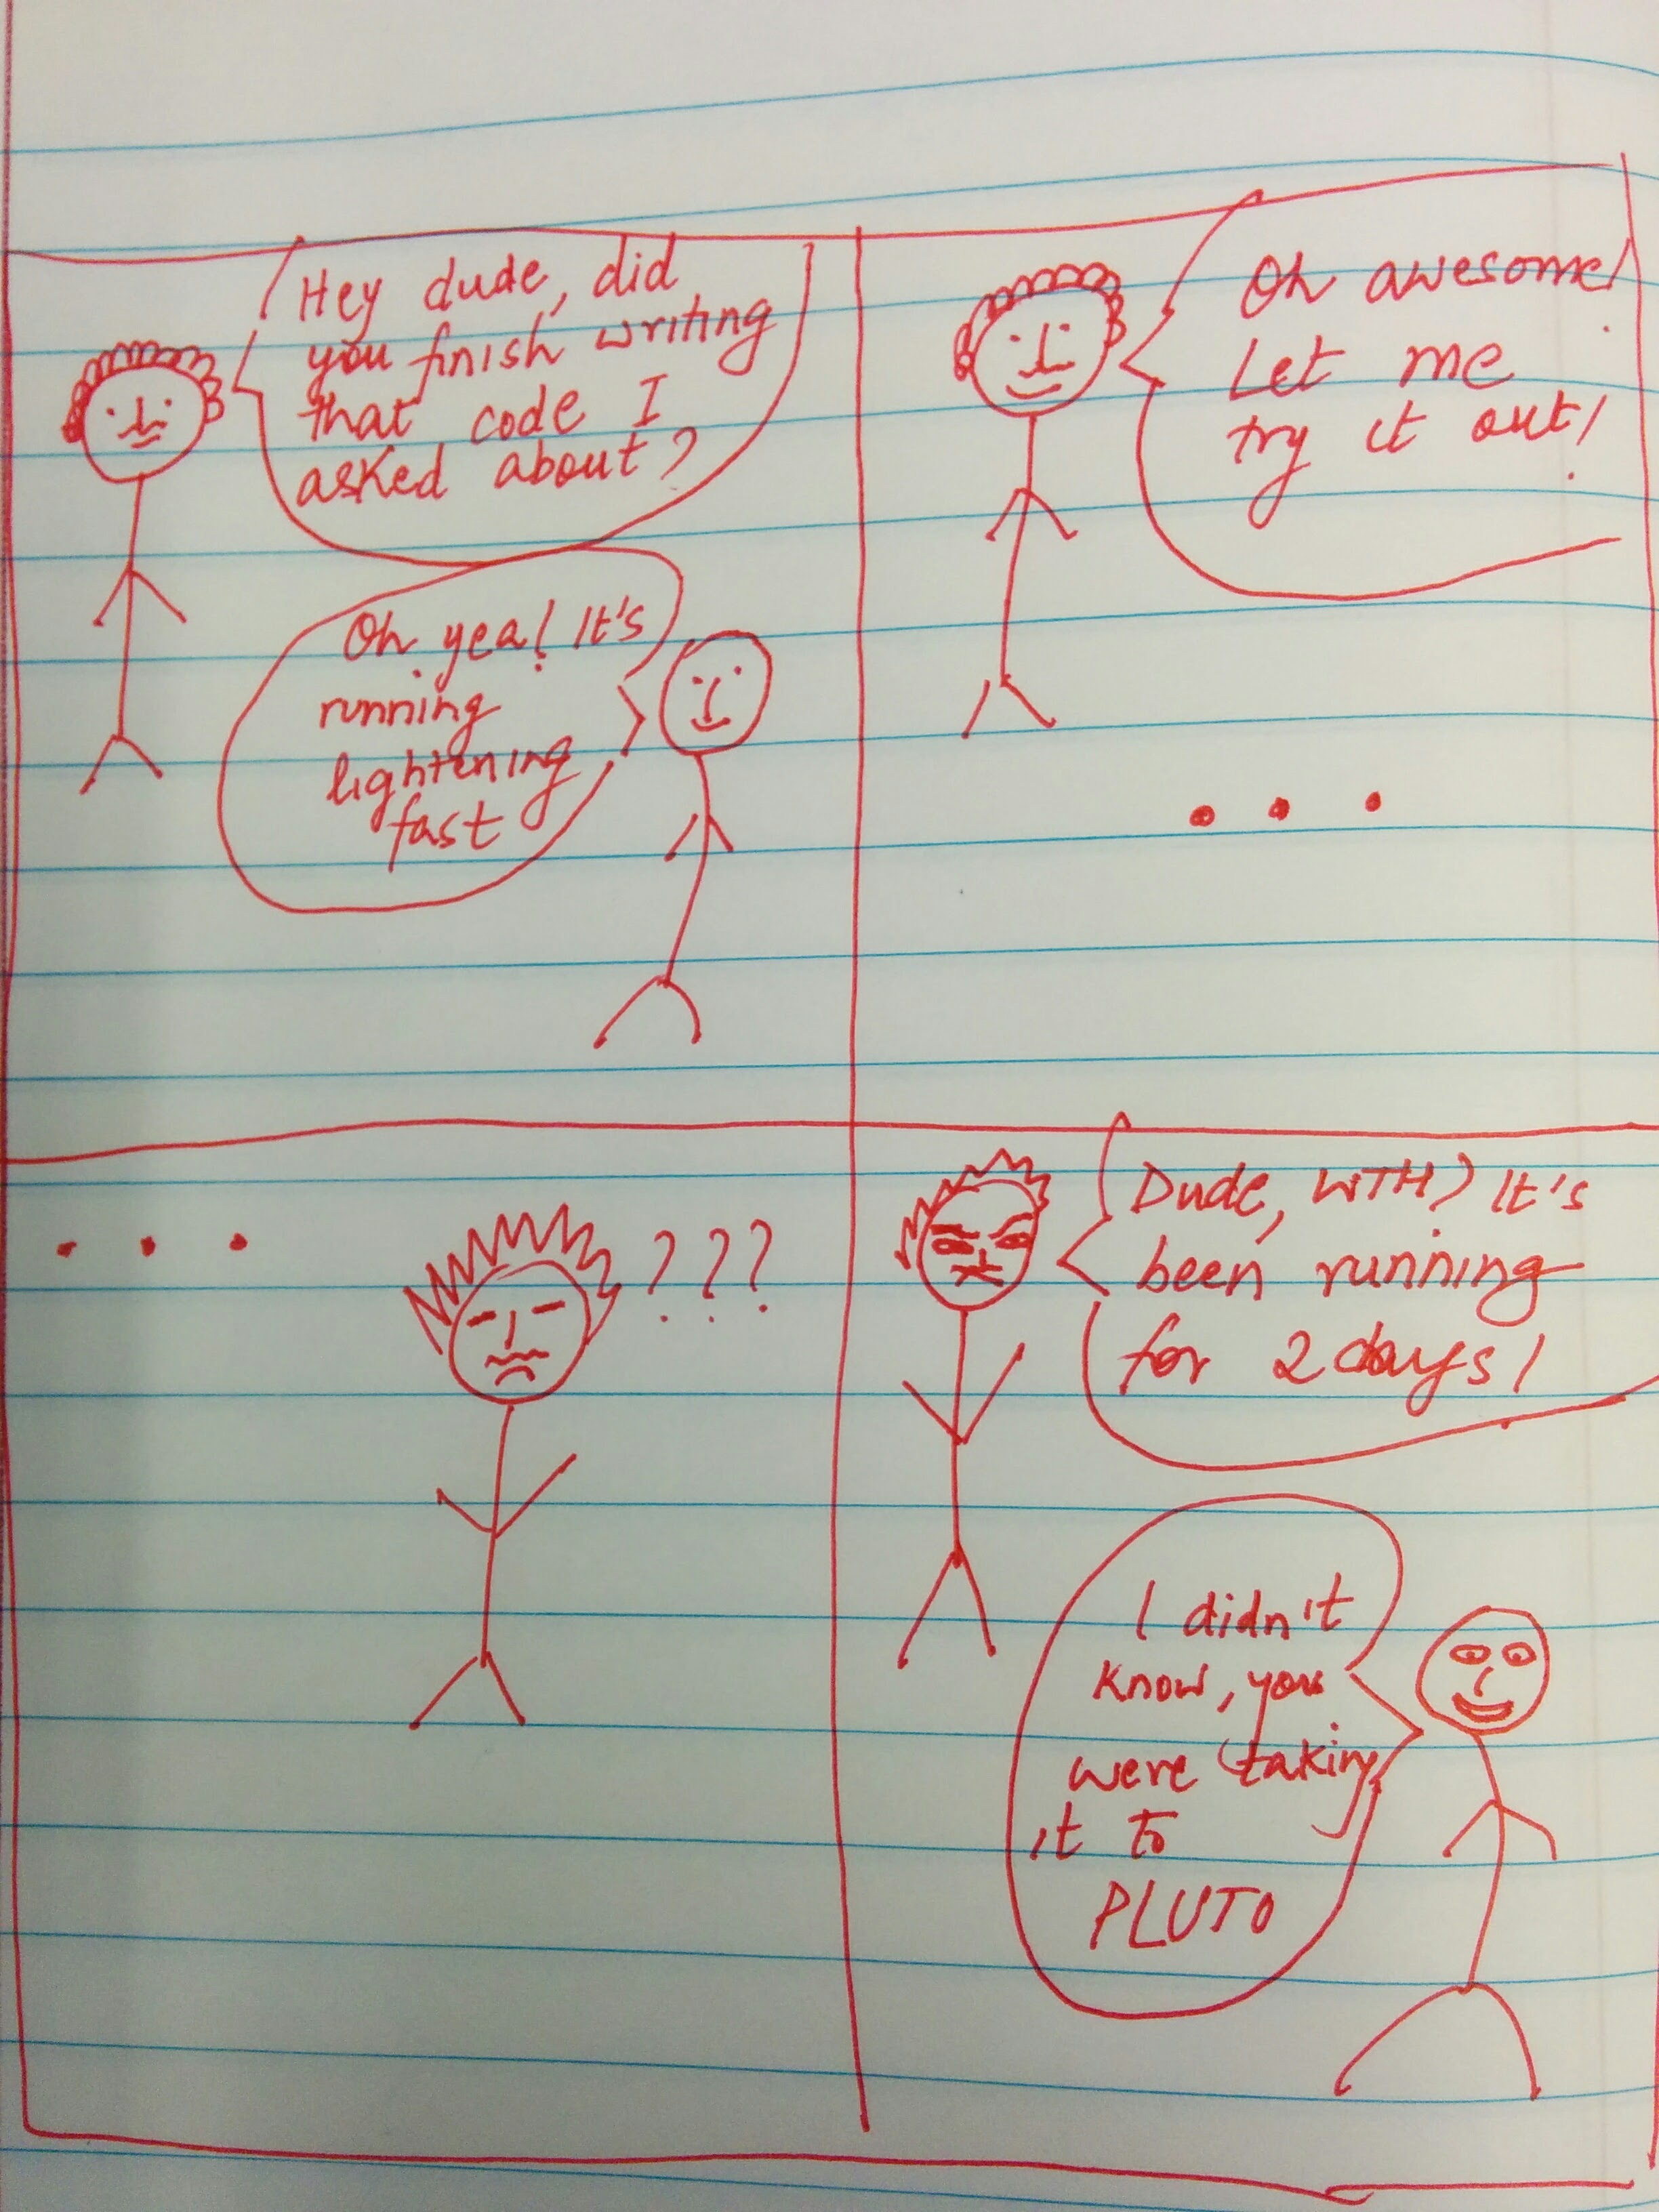 Hey dude, did
you finish writing
that code I
asked about?
Oh yea! It's
running
lightening
fast
Oh awesome!
Let me
try it out!
. . .
. . .
???
Dude, WTH? It's
been running
for 2 days!
I didn't
know, you
were taking
it to
PLUTO